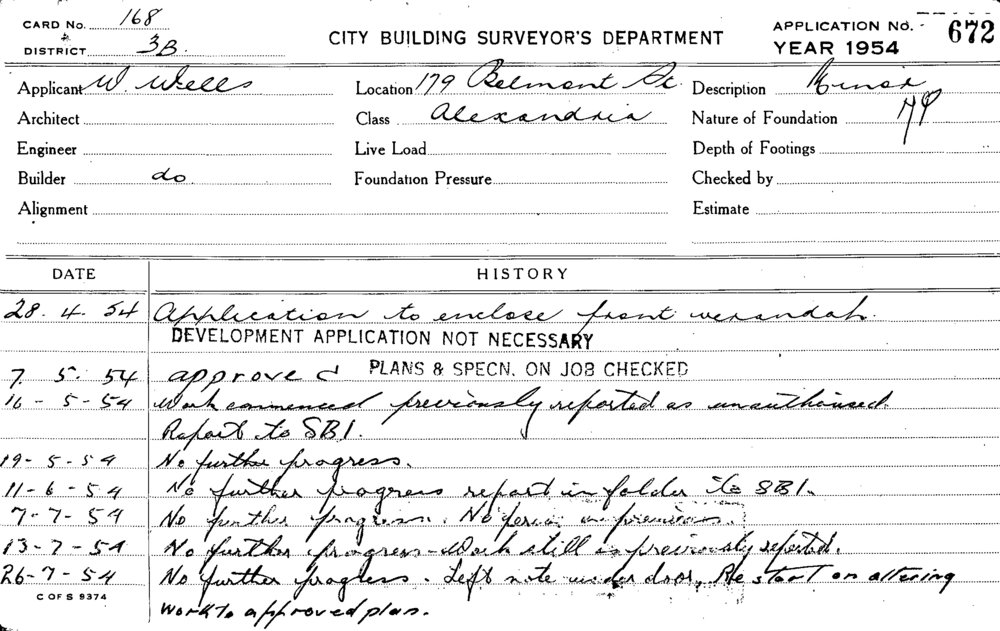 CARD No. 168
& DISTRICT 3B.
CITY BUILDING SURVEYOR'S DEPARTMENT
APPLICATION No. 672
YEAR 1954
Applicant W. Wells Location 179 Belmont St. Description Minor
Architect Class Alexandria Nature of Foundation
Engineer Live Load Depth of Footings
Builder do Foundation Pressure Checked by
Alignment Estimate
DATE HISTORY
28. 4. 54 Application to enclose front verandah.
DEVELOPMENT APPLICATION NOT NECESSARY
7. 5. 54 approved PLANS & SPECN. ON JOB CHECKED
16-5-54 Work commenced previously reported as unauthorised.
Report to SBI.
19-5-54 No further progress.
11-6-54 No further progress report in folder to SBI.
7-7-54 No further progress. No person on premises.
13-7-54 No further progress - Work still as previously reported.
26-7-54 No further progress. Left note under door, Re start on altering
C OF S 9374
work to approved plan.